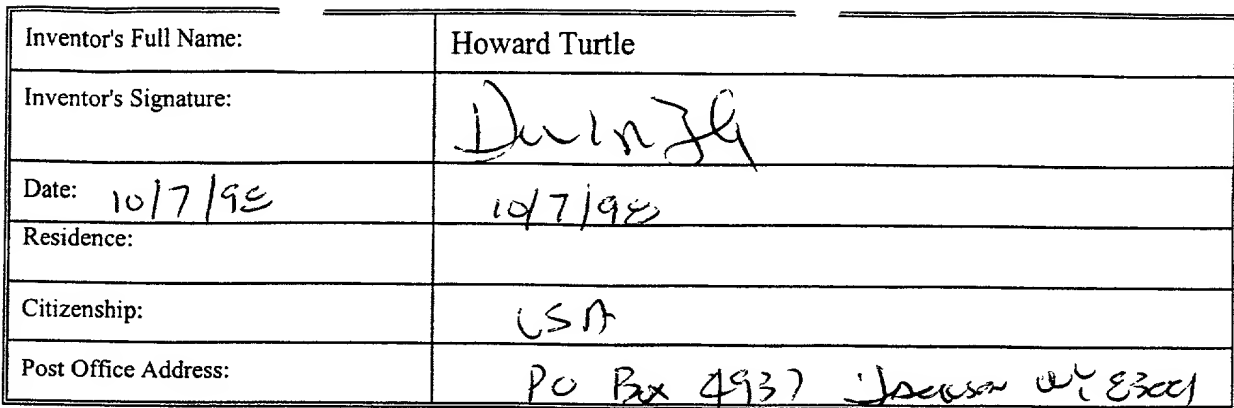 Inventor's Full Name: Howard Turtle
Inventor's Signature:
Date: 10/7/98 10/7/98
Residence:
Citizenship: USA
Post Office Address: PO Box 4937 Jackson WY